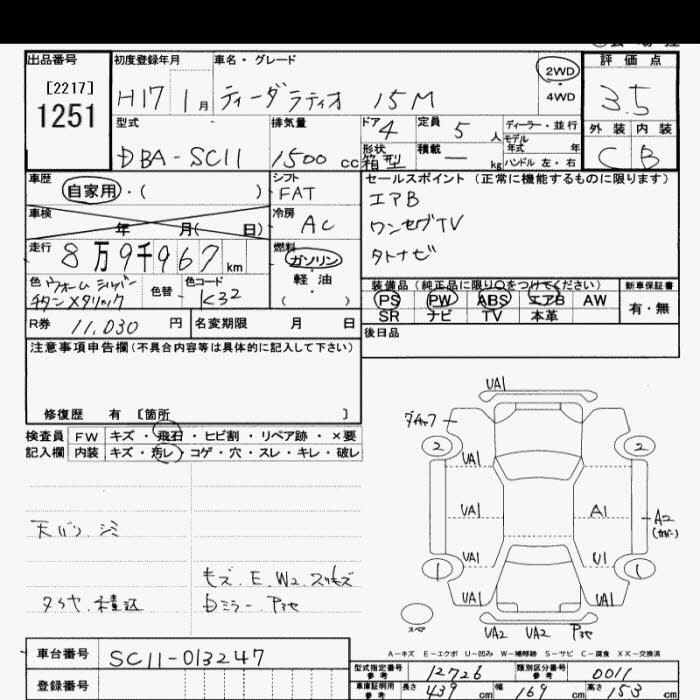 出品番号 初度登録年月 車名・グレード 評価点
[2217]
1251
H17 1月 ティーダラティオ 15M 2WD・4WD 3.5
型式 排気量 ドア 4 定員 5人 ディーラー・並行 外装 内装
DBA-SC11 1500cc 形状 箱型 積載 ー kg モデル年式 年 ハンドル 左・右 C B
車歴 シフト セールスポイント (正常に機能するものに限ります)
自家用・( ) FAT エアB
車検 年 月( 日) 冷房 AC ワンセグTV
走行 8万9千967km 燃料 ガソリン・軽油・( ) タトナビ
色 ウォームシルバー チタンメタリック 色替 色コード K32
装備品 (純正品に限り○をつけてください) 新車保証書
PS PW ABS エアB AW 有・無
SR ナビ TV 本革
R券 11,030円 名変期限 月 日 後日品
注意事項申告欄(不具合内容等は具体的に記入して下さい)
修復歴 有 [箇所 ]
検査員 FW キズ・飛石・ヒビ割・リペア跡・×要
記入欄 内装 キズ・汚レ・コゲ・穴・スレ・キレ・破レ
UA1
2 UA1 2
UA1 A1 A2
(カバー)
UA1 U1
1 1
UA1 UA1
スペア UA2 UA2
A-キズ E-エクボ U-凹み W-補修跡 S-サビ C-腐食 XX-交換済
モズ.E.W2.スリキズ
車台番号 SC11-013247
登録番号
型式指定番号 参考 12726 類別区分番号 参考 0011
車庫証明用 参考 長さ 439cm 幅 169cm 高さ 153cm